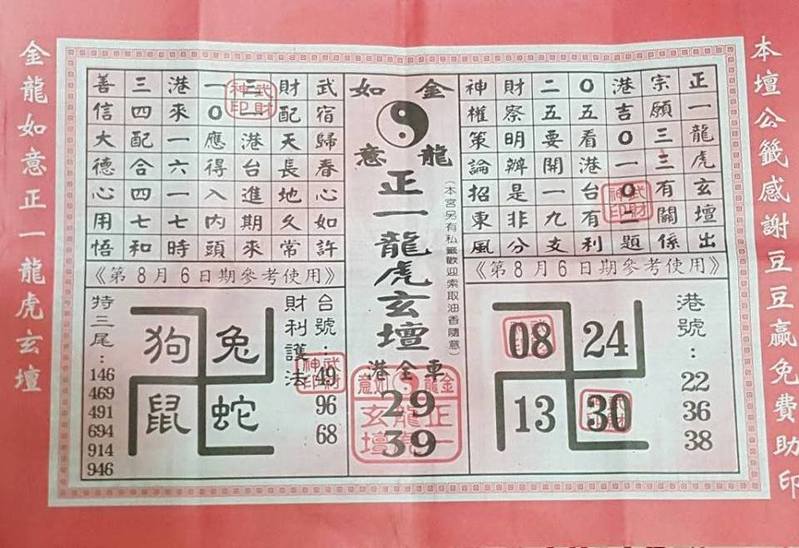 本壇公籤感謝豆豆贏免費助印
正一龍虎玄壇出
宗願三三有關係
港吉0一0二題
0五看港台有利
二五要開一九支
財察明辦是非分
神權策論招東風
《第8月6日期參考使用》
港號：
22
36
38
24
30
08
13
金龍如意
正一龍虎玄壇
(本宮另有私籤歡迎索取油香隨意)
港全車
29
39
武宿歸春心如許
財配天長地久常
港台進期來
一0應得入內頭
港來一六一七時
三四配合四七和
善信大德心用悟
《第8月6日期參考使用》
台號：
49
96
68
財利護法
兔
蛇
狗
鼠
特三尾：
146
469
491
694
914
946
金龍如意正一龍虎玄壇